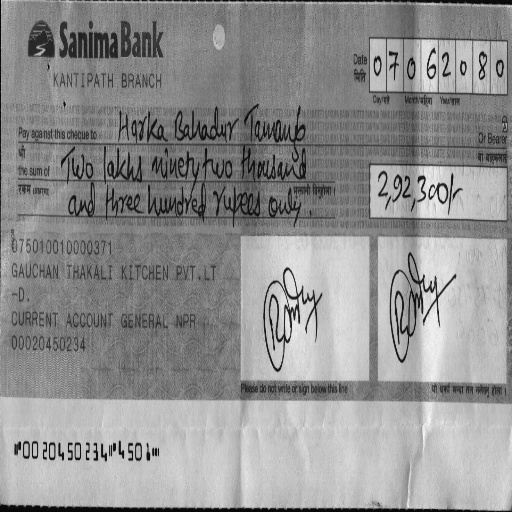 Sanima Bank
KANTIPATH BRANCH
Date
मिति
0 7 0 6 2 0 8 0
Day/गते Month/महिना Year/साल
Pay against this cheque to Harka Bahadur Tamang
Or Bearer
श्री
वा वाहकलाई
the sum of Two lakhs ninety two thousand
रकम अक्षरमा
and three hundred rupees only.
2,92,300/-
075010010000371
GAUCHAN THAKALI KITCHEN PVT.LT
-D.
CURRENT ACCOUNT GENERAL NPR
00020450234
Please do not write or sign below this line
यो धर्का भन्दा तल नलेख्नु होला ।
"00 20450234"450